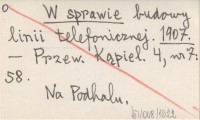 W sprawie budowy
linii telefonicznej. 1907.
— Przew. Kąpiel. 4, nr 7:
58.
Na Podhalu.